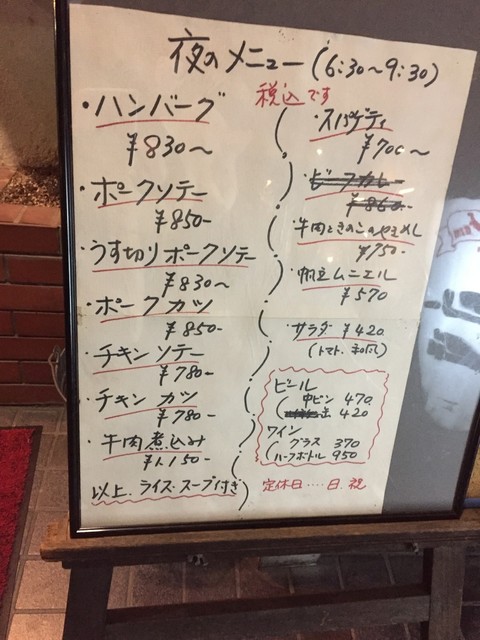 夜のメニュー (6:30〜9:30)
税込です
・ハンバーグ
¥830〜
・ポークソテー
¥850-
・うす切りポークソテー
¥830〜
・ポークカツ
¥850-
・チキンソテー
¥780-
・チキンカツ
¥780-
・牛肉煮込み
¥1,150-
以上、ライス・スープ付き
・スパゲティ
¥700〜
・ビーフカレー
¥860-
・牛肉ときのこのやきめし
¥750-
・帆立ムニエル
¥570
・サラダ ¥420
(トマト、
ビール
中ビン 470
缶 420
ワイン
グラス 370
ハーフボトル 950
定休日‥‥日、祝